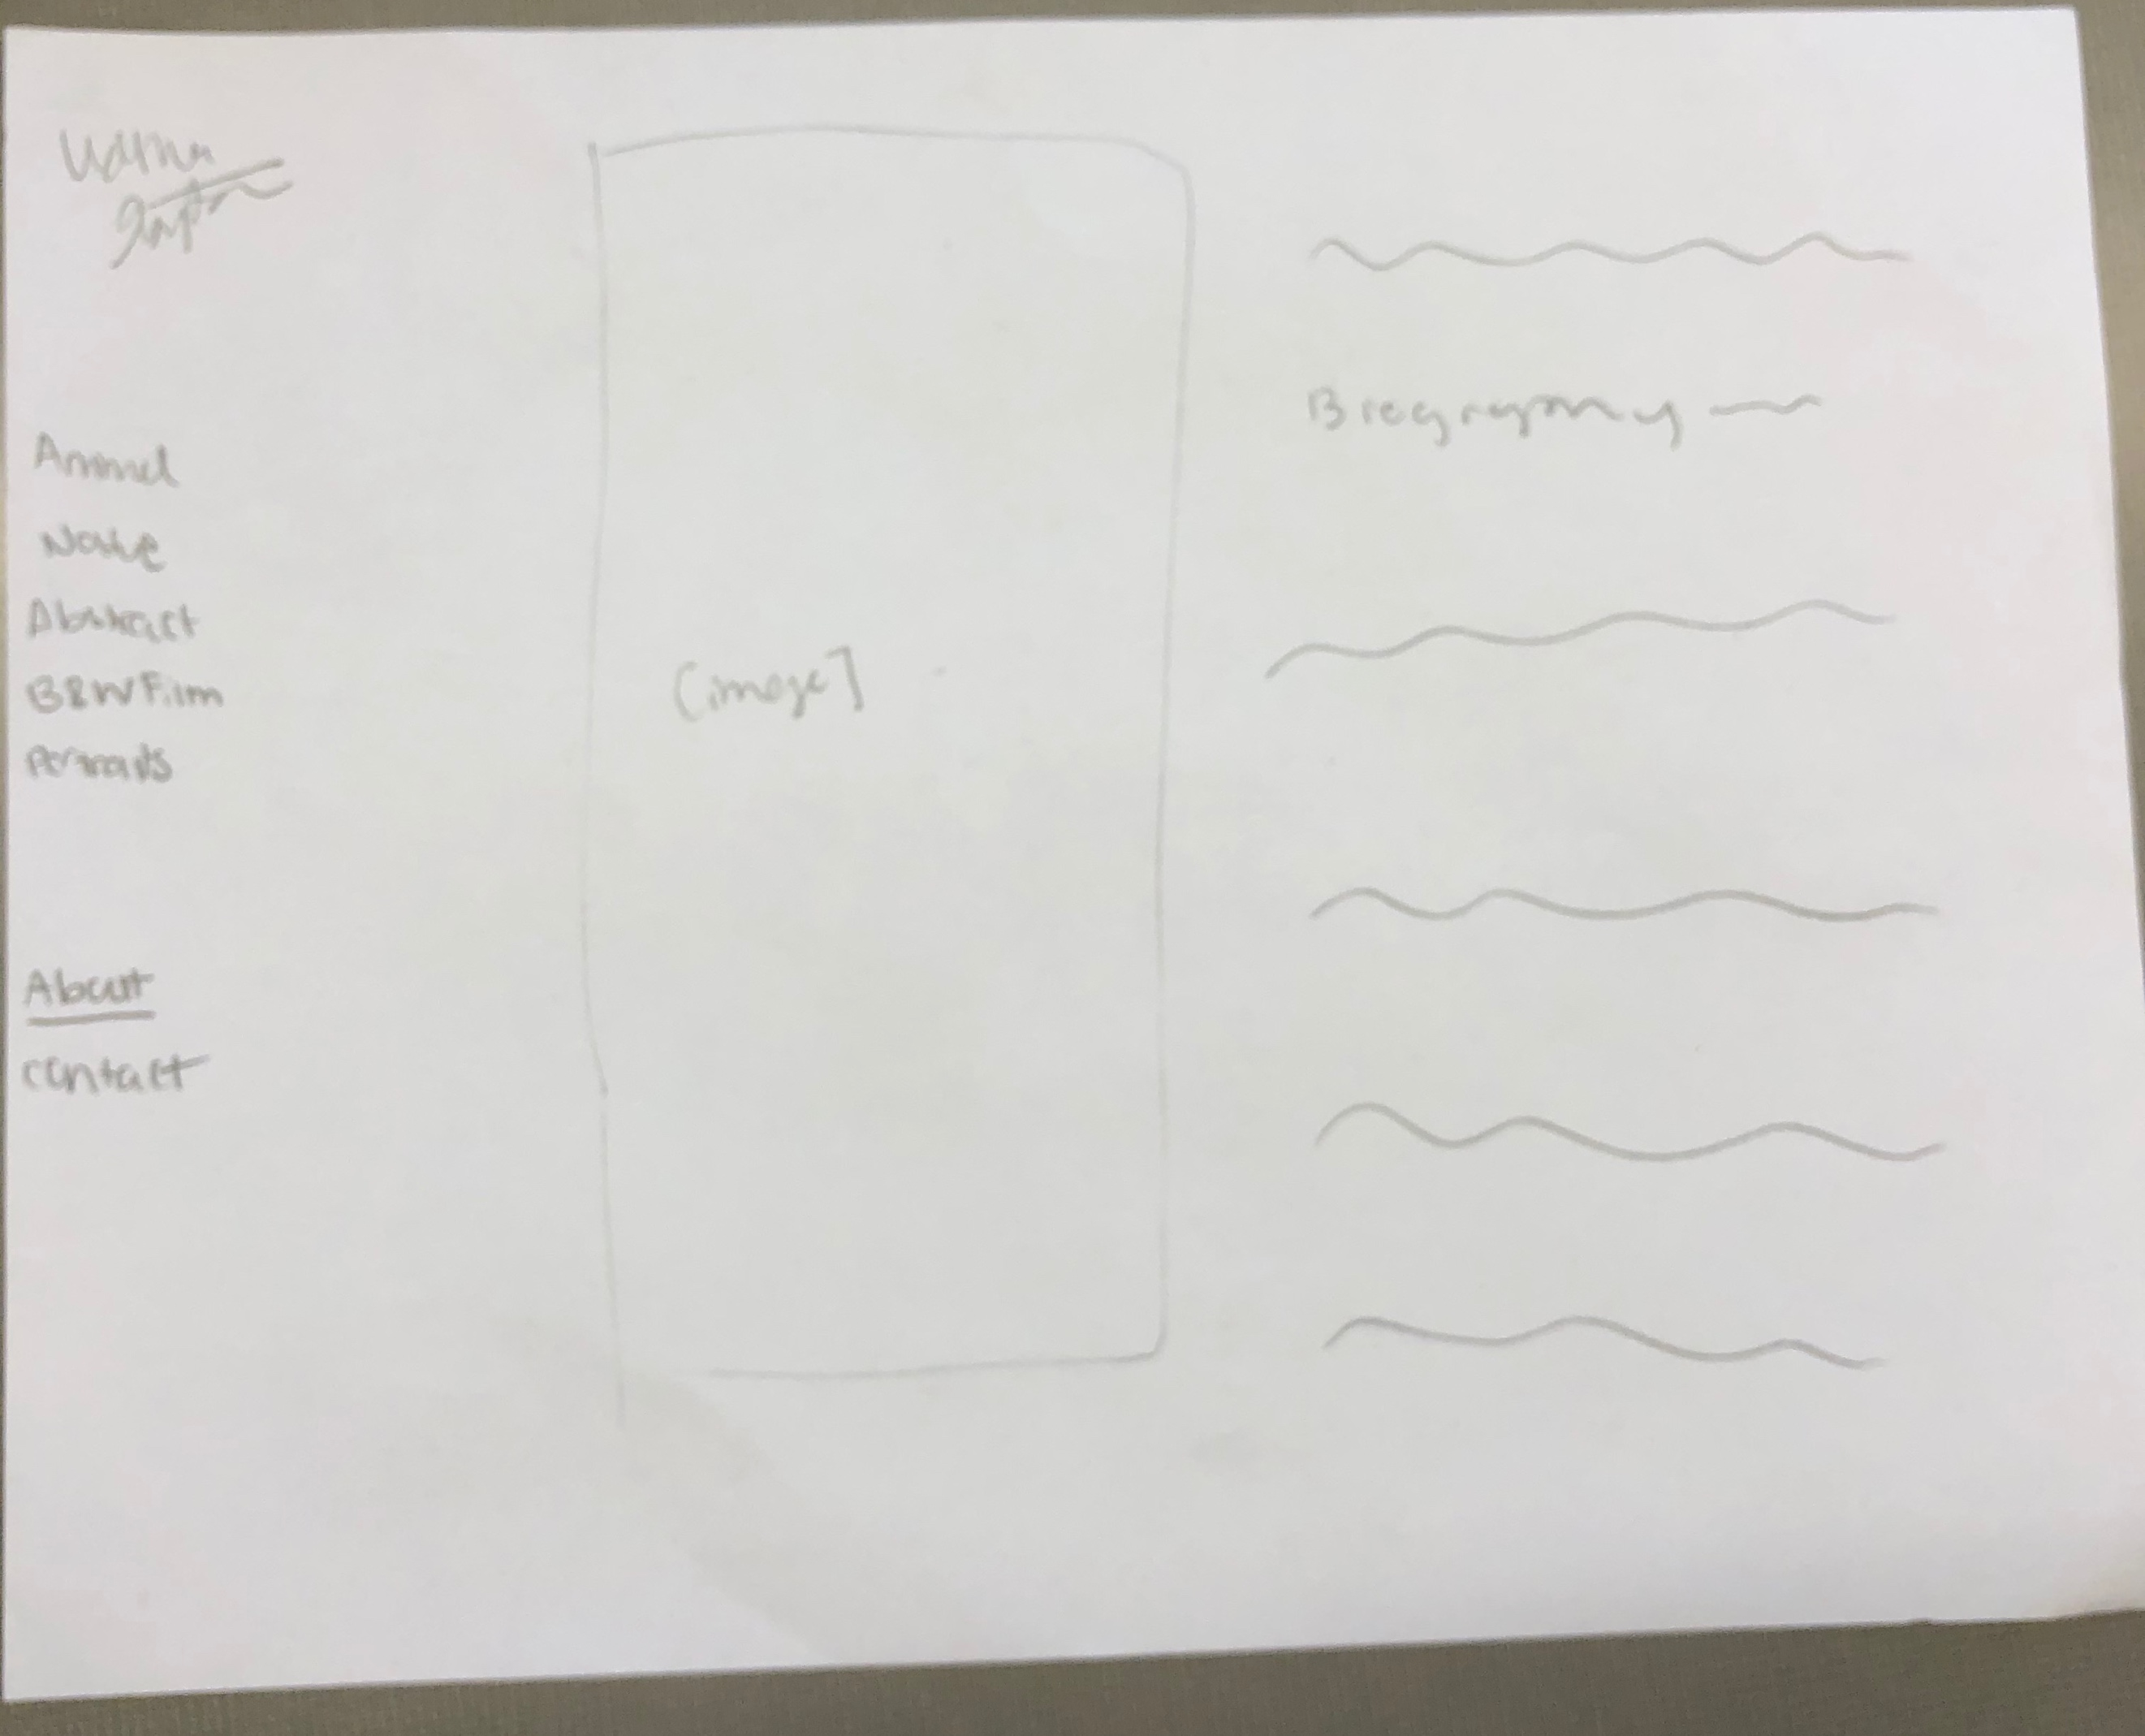 Animal
Nature
Abstract
B&W Film
Portraits
About
contact
[image]
Biography